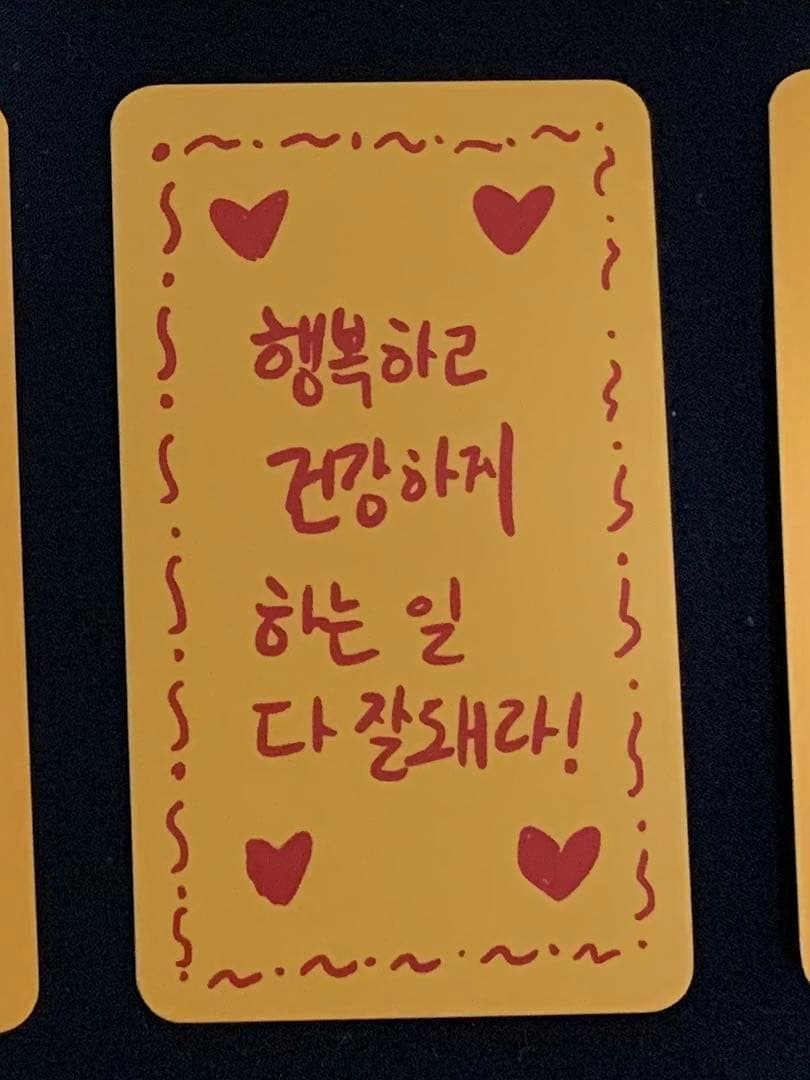 행복하고
건강하게
하는 일
다 잘돼라!